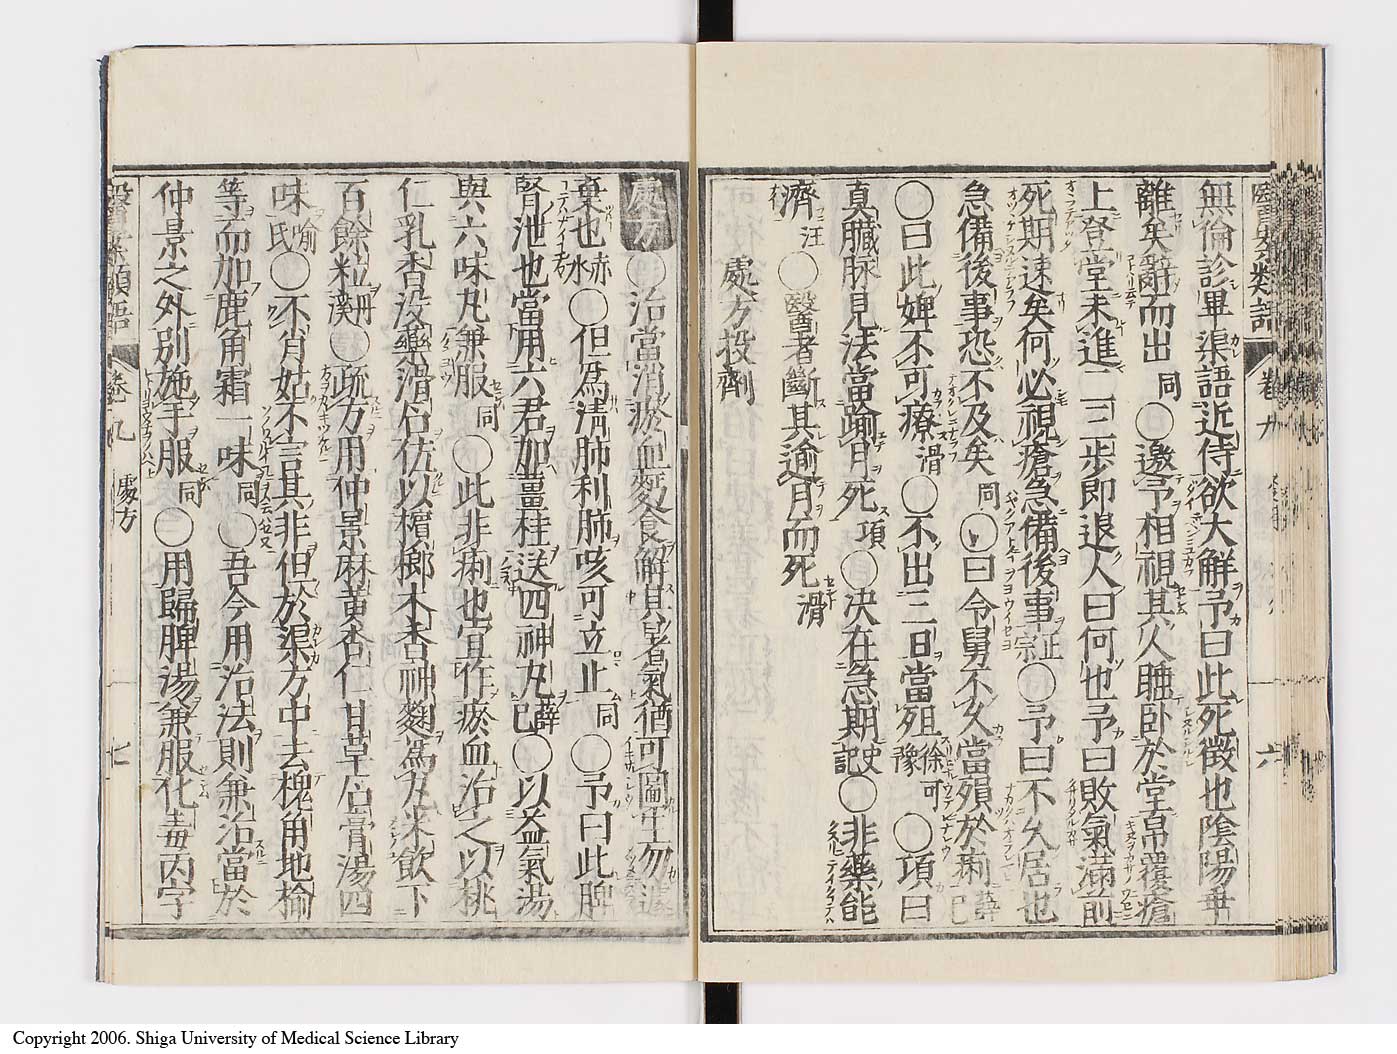 無倫診畢渠語近侍欲大解予曰此死徵也陰陽乖
離矣辭而出同○邀予相視其人睡臥於堂帛覆瘡
上登堂未進二三步即退人曰何也予曰敗氣滿前
死期速矣何必視瘡急備後事正宗○予曰不久居也
急備後事恐不及矣同○曰令舅不久當殞於痢薛己
○曰此婢不可療滑○不出三日當殂徐可豫○項曰
真臟脉見法當踰月死項○決在急期史記○非藥能
濟汪○醫者斷其逾月而死滑
處方投劑
處方○治當消瘀血變食解其暑氣猶可圖生勿遽
棄也赤水○但爲清肺利肺咳可立止同○予曰此脾
腎泄也當用六君加薑桂送四神丸薛己○以益氣湯
與六味丸兼服同○此非痢也宜作瘀血治之以桃
仁乳香没藥滑石佐以檳榔木香神麴爲丸米飲下
百餘粒○疏方用仲景麻黄杏仁甘草石膏湯四
味喻氏○不肖姑不言其非但於渠方中去槐角地榆
等而加鹿角霜一味同○吾今用治法則兼治當於
仲景之外別施手服同○用歸脾湯兼服化毒丙字
卷九 處方 七
Copyright 2006. Shiga University of Medical Science Library